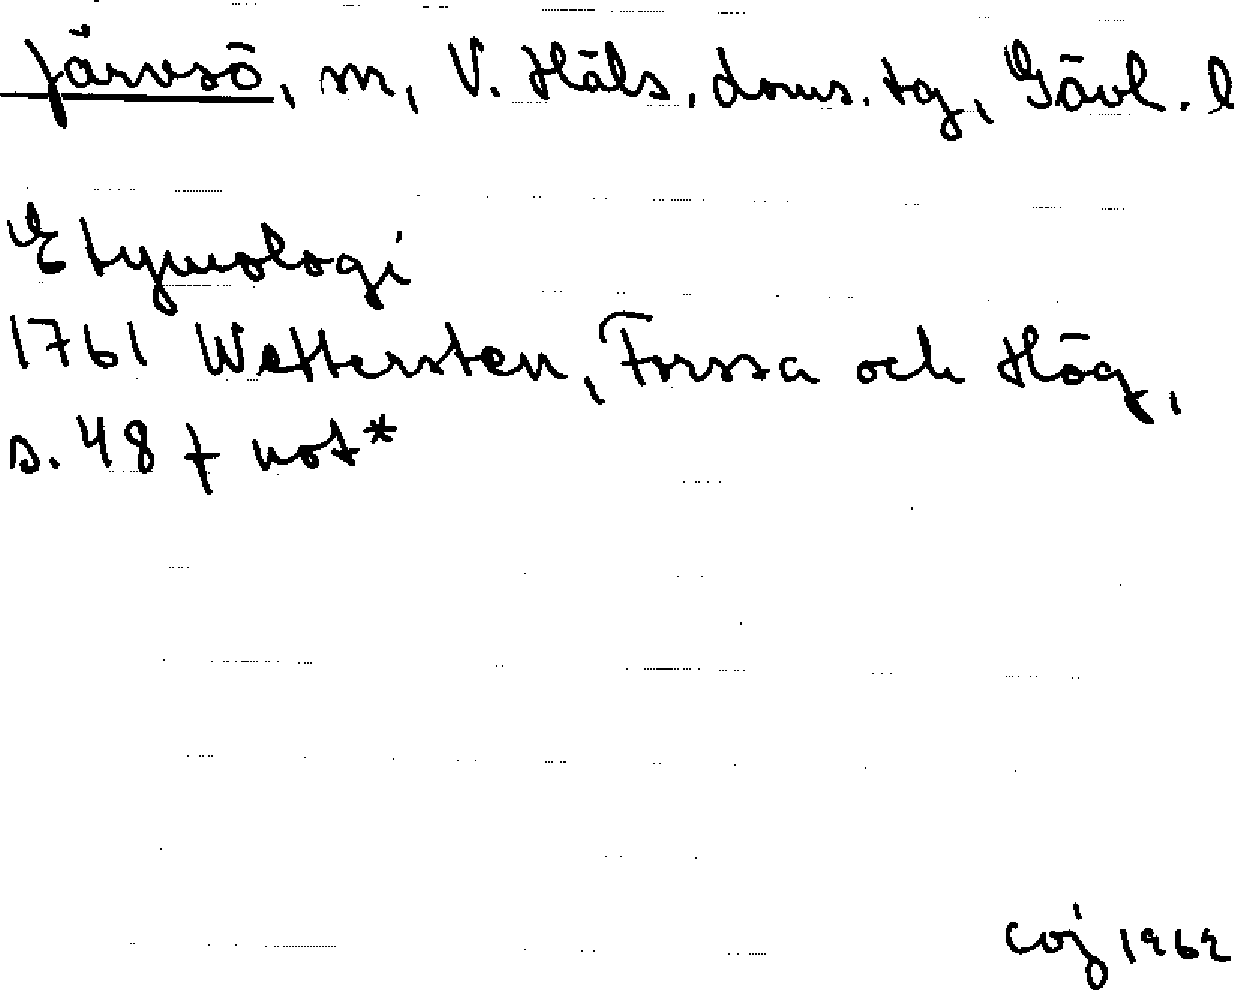 Järvsö, sn, V. Häls. doms. tg, Gävl. l
Etymologi
1761 Wettersten, Forssa och Hög,
s. 48 f not*
coj 1969